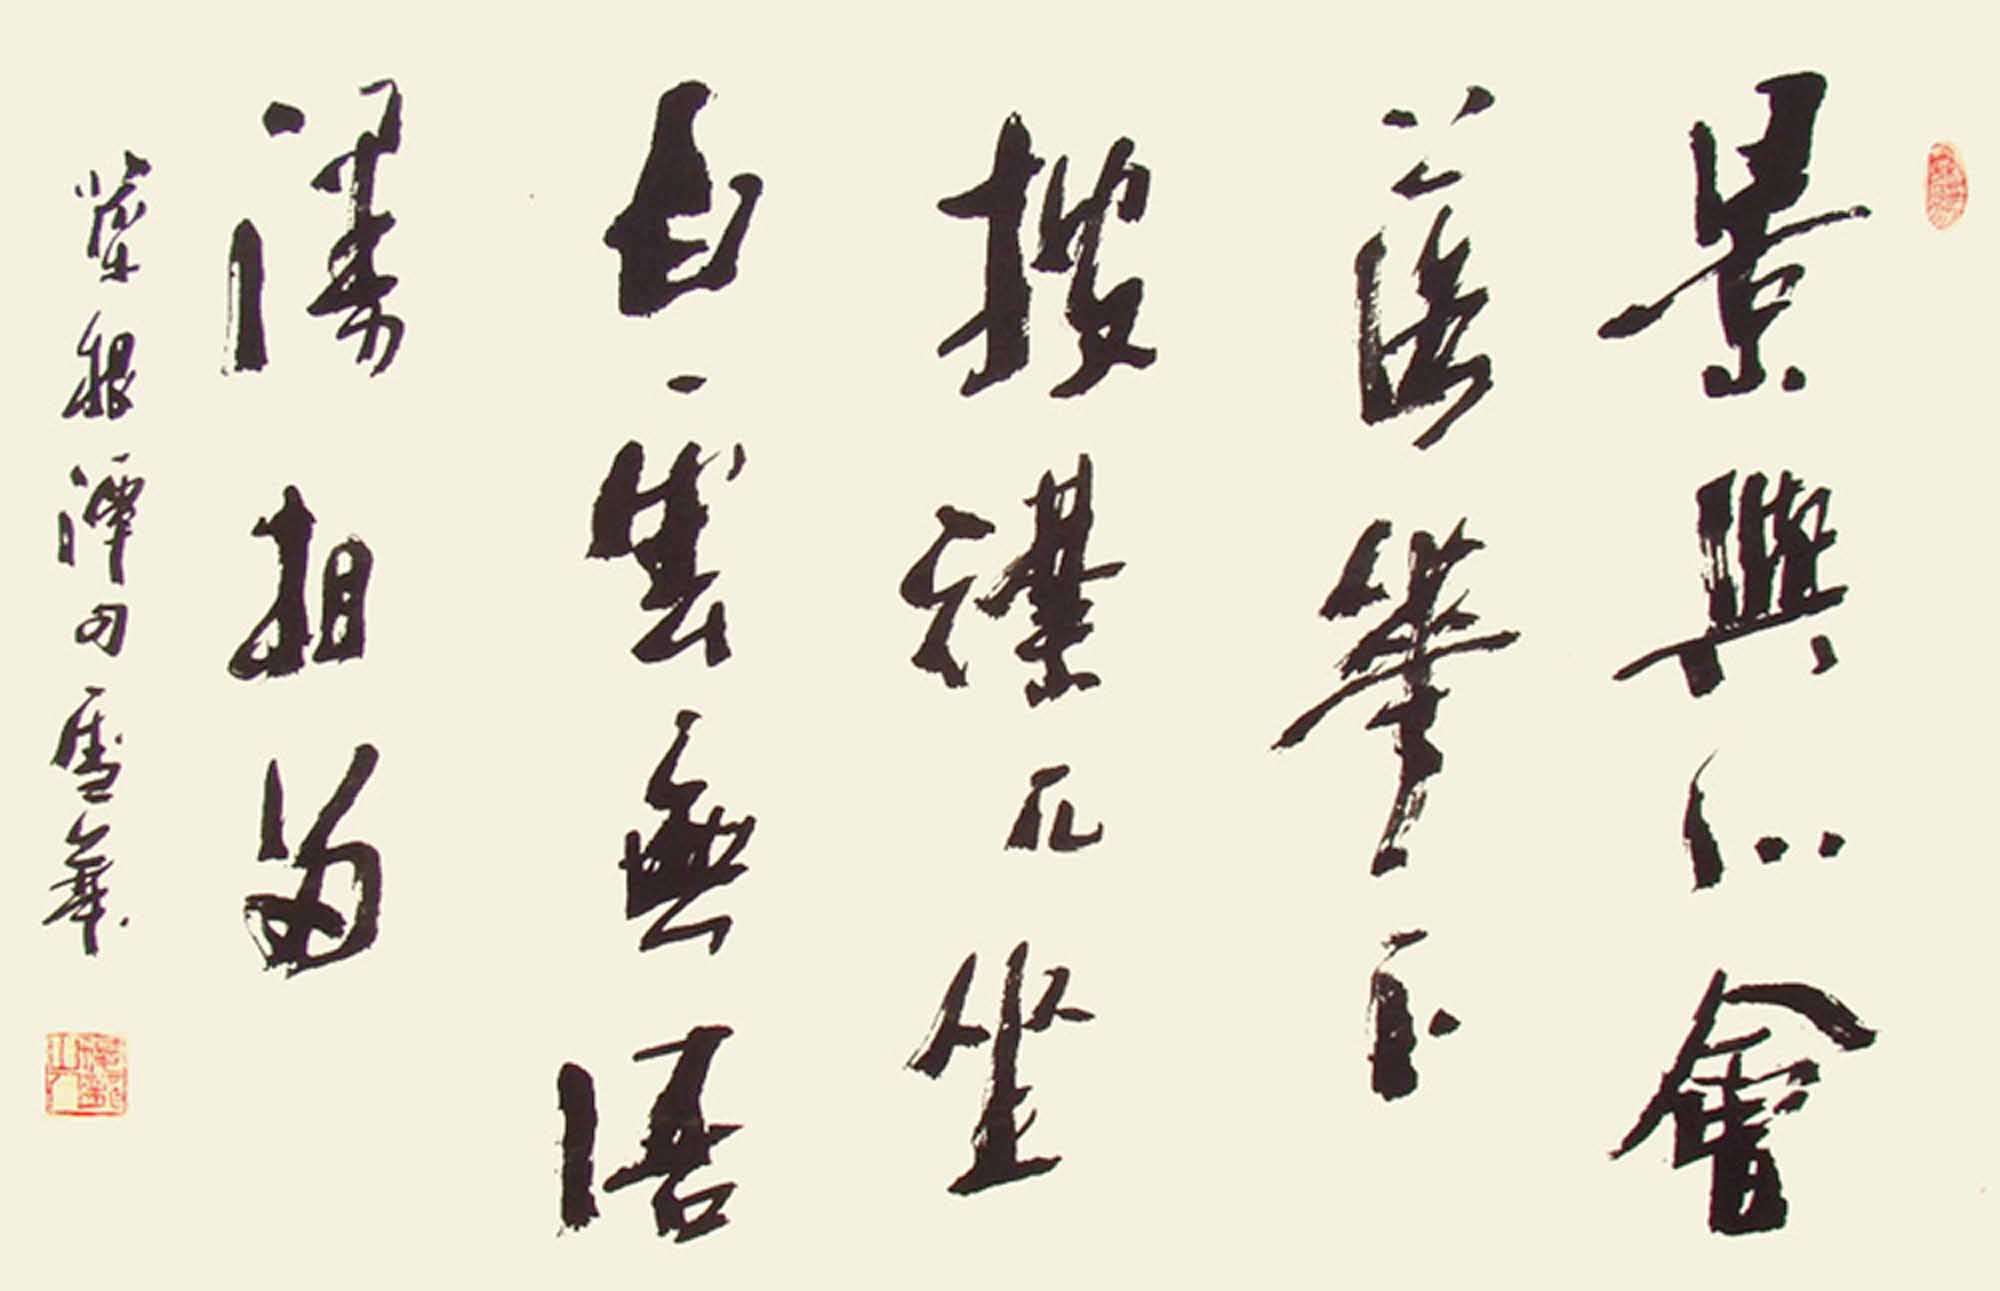 景與心會
落華下
披襟兀坐
白雲無語
漫相留
菜根譚句雪華